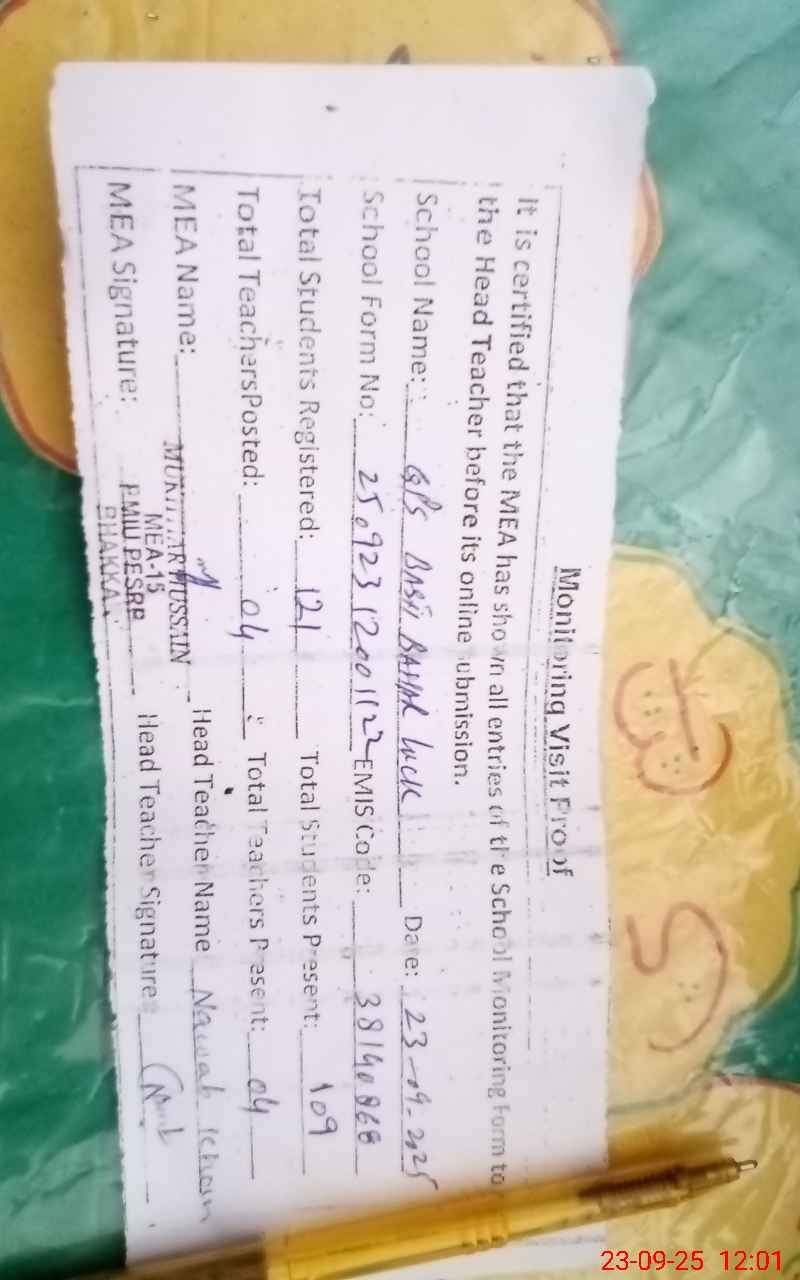 Monitoring Visit Proof
It is certified that the MEA has shown all entries of the School Monitoring Form to
the Head Teacher before its online submission.
School Name: GPS BASTI Date: 23-09-2025
School Form No: 25092312001122 EMIS Code: 38140868
Total Students Registered: 121 Total Students Present: 109
Total TeachersPosted: 04 Total Teachers Present: 04
MEA Name: HUSSAIN Head Teacher Name Nawab
MEA-15
MEA Signature: PMIU PESRP Head Teacher Signature:
BHAKKAR
23-09-25 12:01